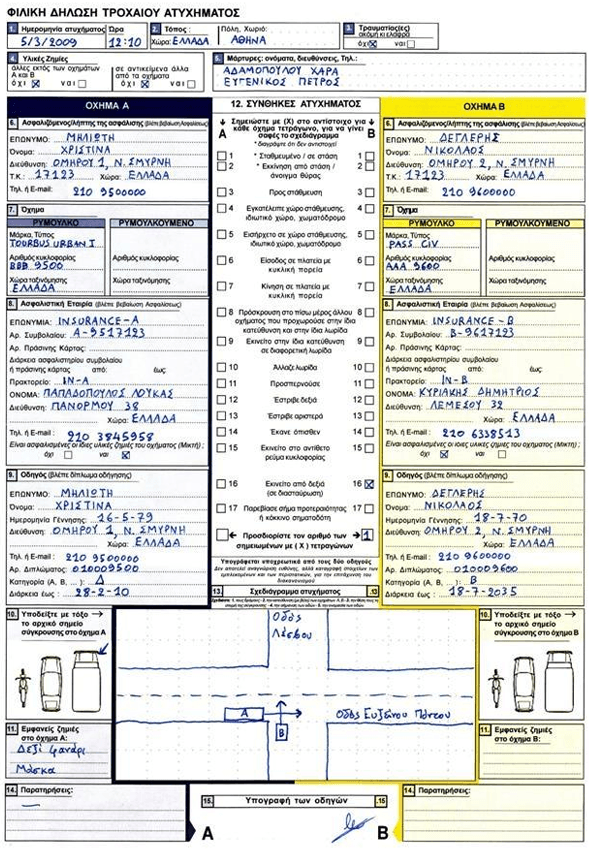 ΦΙΛΙΚΗ ΔΗΛΩΣΗ ΤΡΟΧΑΙΟΥ ΑΤΥΧΗΜΑΤΟΣ
1. Ημερομηνία ατυχήματος Ώρα
5/3/2009 12:10
2. Τόπος: Πόλη, Χωριό:
Χώρα: ΕΛΛΑΔΑ ΑΘΗΝΑ
3. Τραυματίας(ες)
ακόμη κι ελαφρά
όχι ☒ ναι ☐
4. Υλικές Ζημίες
άλλες εκτός των οχημάτων Α και Β
όχι ☒ ναι ☐
σε αντικείμενα άλλα από τα οχήματα
όχι ☒ ναι ☐
5. Μάρτυρες: ονόματα, διευθύνσεις, Τηλ.:
ΑΔΑΜΟΠΟΥΛΟΥ ΧΑΡΑ
ΕΥΓΕΝΙΚΟΣ ΠΕΤΡΟΣ
ΟΧΗΜΑ Α
6. Ασφαλιζόμενος/λήπτης της ασφάλισης (βλέπε βεβαίωση Ασφαλίσεως)
ΕΠΩΝΥΜΟ: ΜΗΛΙΩΤΗ
Όνομα: ΧΡΙΣΤΙΝΑ
Διεύθυνση: ΟΜΗΡΟΥ 1, Ν. ΣΜΥΡΝΗ
Τ.Κ.: 17123 Χώρα: ΕΛΛΑΔΑ
Τηλ. ή E-mail: 210 9500000
7. Όχημα
ΡΥΜΟΥΛΚΟ ΡΥΜΟΥΛΚΟΥΜΕΝΟ
Μάρκα, Τύπος
TOURBUS URBAN I
Αριθμός κυκλοφορίας Αριθμός κυκλοφορίας
BBB 9500
Χώρα ταξινόμησης Χώρα ταξινόμησης
ΕΛΛΑΔΑ
8. Ασφαλιστική Εταιρία (βλέπε βεβαίωση Ασφαλίσεως)
ΕΠΩΝΥΜΙΑ: INSURANCE-A
Αρ. Συμβολαίου: A-9517123
Αρ. Πράσινης Κάρτας:
Διάρκεια ασφαλιστικού συμβολαίου
ή πράσινης κάρτας από: έως:
Πρακτορείο: IN-A
ΟΝΟΜΑ: ΠΑΠΑΔΟΠΟΥΛΟΣ ΛΟΥΚΑΣ
Διεύθυνση: ΠΑΝΟΡΜΟΥ 38
Χώρα: ΕΛΛΑΔΑ
Τηλ. ή E-mail: 210 3845958
Είναι ασφαλισμένες οι ίδιες υλικές ζημιές του οχήματος (Μικτή);
όχι ☐ ναι ☒
9. Οδηγός (βλέπε δίπλωμα οδήγησης)
ΕΠΩΝΥΜΟ: ΜΗΛΙΩΤΗ
Όνομα: ΧΡΙΣΤΙΝΑ
Ημερομηνία Γέννησης: 16-5-79
Διεύθυνση: ΟΜΗΡΟΥ 1, Ν. ΣΜΥΡΝΗ
Χώρα: ΕΛΛΑΔΑ
Τηλ. ή E-mail: 210 9500000
Αρ. Διπλώματος: 010009500
Κατηγορία (Α, Β, ...): Δ
Διάρκεια έως: 28-2-10
12. ΣΥΝΘΗΚΕΣ ΑΤΥΧΗΜΑΤΟΣ
Α Σημειώστε με (Χ) στο αντίστοιχο για κάθε όχημα τετράγωνο, για να γίνει σαφές το σχεδιάγραμμα Β
* διαγράψτε ότι δεν αντιστοιχεί
1 * Σταθμευμένο / σε στάση 1
2 * Εκκίνηση από στάση / άνοιγμα θύρας 2
3 Προς στάθμευση 3
4 Εγκατέλειπε χώρο στάθμευσης, ιδιωτικό χώρο, χωματόδρομο 4
5 Εισήρχετο σε χώρο στάθμευσης, ιδιωτικό χώρο, χωματόδρομο 5
6 Είσοδος σε πλατεία με κυκλική πορεία 6
7 Κίνηση σε πλατεία με κυκλική πορεία 7
8 Πρόσκρουση στο πίσω μέρος άλλου οχήματος που προχωρούσε στην ίδια κατεύθυνση και στην ίδια λωρίδα 8
9 Εκινείτο στην ίδια κατεύθυνση σε διαφορετική λωρίδα 9
10 Άλλαζε λωρίδα 10
11 Προσπερνούσε 11
12 Έστριβε δεξιά 12
13 Έστριβε αριστερά 13
14 Έκανε όπισθεν 14
15 Εκινείτο στο αντίθετο ρεύμα κυκλοφορίας 15
16 Εκινείτο από δεξιά (σε διασταύρωση) 16 ☒
17 Παρεβίασε σήμα προτεραιότητας ή κόκκινο σηματοδότη 17
Προσδιορίστε τον αριθμό των σημειωμένων με ( Χ ) τετραγώνων 1
Υπογράφεται υποχρεωτικά από τους δύο οδηγούς
13. Σχεδιάγραμμα ατυχήματος .13
ΟΧΗΜΑ Β
6. Ασφαλιζόμενος/λήπτης της ασφάλισης (βλέπε βεβαίωση Ασφαλίσεως)
ΕΠΩΝΥΜΟ: ΔΕΓΛΕΡΗΣ
Όνομα: ΝΙΚΟΛΑΟΣ
Διεύθυνση: ΟΜΗΡΟΥ 2, Ν. ΣΜΥΡΝΗ
Τ.Κ.: 17123 Χώρα: ΕΛΛΑΔΑ
Τηλ. ή E-mail: 210 9600000
7. Όχημα
ΡΥΜΟΥΛΚΟ ΡΥΜΟΥΛΚΟΥΜΕΝΟ
Μάρκα, Τύπος
PASS CIV
Αριθμός κυκλοφορίας Αριθμός κυκλοφορίας
AAA 9600
Χώρα ταξινόμησης Χώρα ταξινόμησης
ΕΛΛΑΔΑ
8. Ασφαλιστική Εταιρία (βλέπε βεβαίωση Ασφαλίσεως)
ΕΠΩΝΥΜΙΑ: INSURANCE-B
Αρ. Συμβολαίου: B-9617123
Αρ. Πράσινης Κάρτας:
Διάρκεια ασφαλιστικού συμβολαίου
ή πράσινης κάρτας από: έως:
Πρακτορείο: IN-B
ΟΝΟΜΑ: ΚΥΡΙΑΚΗΣ ΔΗΜΗΤΡΙΟΣ
Διεύθυνση: ΛΕΜΕΣΟΥ 32
Χώρα: ΕΛΛΑΔΑ
Τηλ. ή E-mail: 210 6338513
Είναι ασφαλισμένες οι ίδιες υλικές ζημιές του οχήματος (Μικτή);
όχι ☒ ναι ☐
9. Οδηγός (βλέπε δίπλωμα οδήγησης)
ΕΠΩΝΥΜΟ: ΔΕΓΛΕΡΗΣ
Όνομα: ΝΙΚΟΛΑΟΣ
Ημερομηνία Γέννησης: 18-7-70
Διεύθυνση: ΟΜΗΡΟΥ 2, Ν. ΣΜΥΡΝΗ
Χώρα: ΕΛΛΑΔΑ
Τηλ. ή E-mail: 210 9600000
Αρ. Διπλώματος: 010009600
Κατηγορία (Α, Β, ...): Β
Διάρκεια έως: 18-7-2035
10. Υποδείξτε με τόξο → το αρχικό σημείο σύγκρουσης στο όχημα Α
11. Εμφανείς ζημιές στο όχημα Α:
Δεξί φανάρι
Μάσκα
14. Παρατηρήσεις:
—
Οδός Λέσβου
Α
Β
Οδός Ευξείνου Πόντου
10. Υποδείξτε με τόξο → το αρχικό σημείο σύγκρουσης στο όχημα Β
11. Εμφανείς ζημιές στο όχημα Β:
14. Παρατηρήσεις:
15. Υπογραφή των οδηγών .15
Α Β